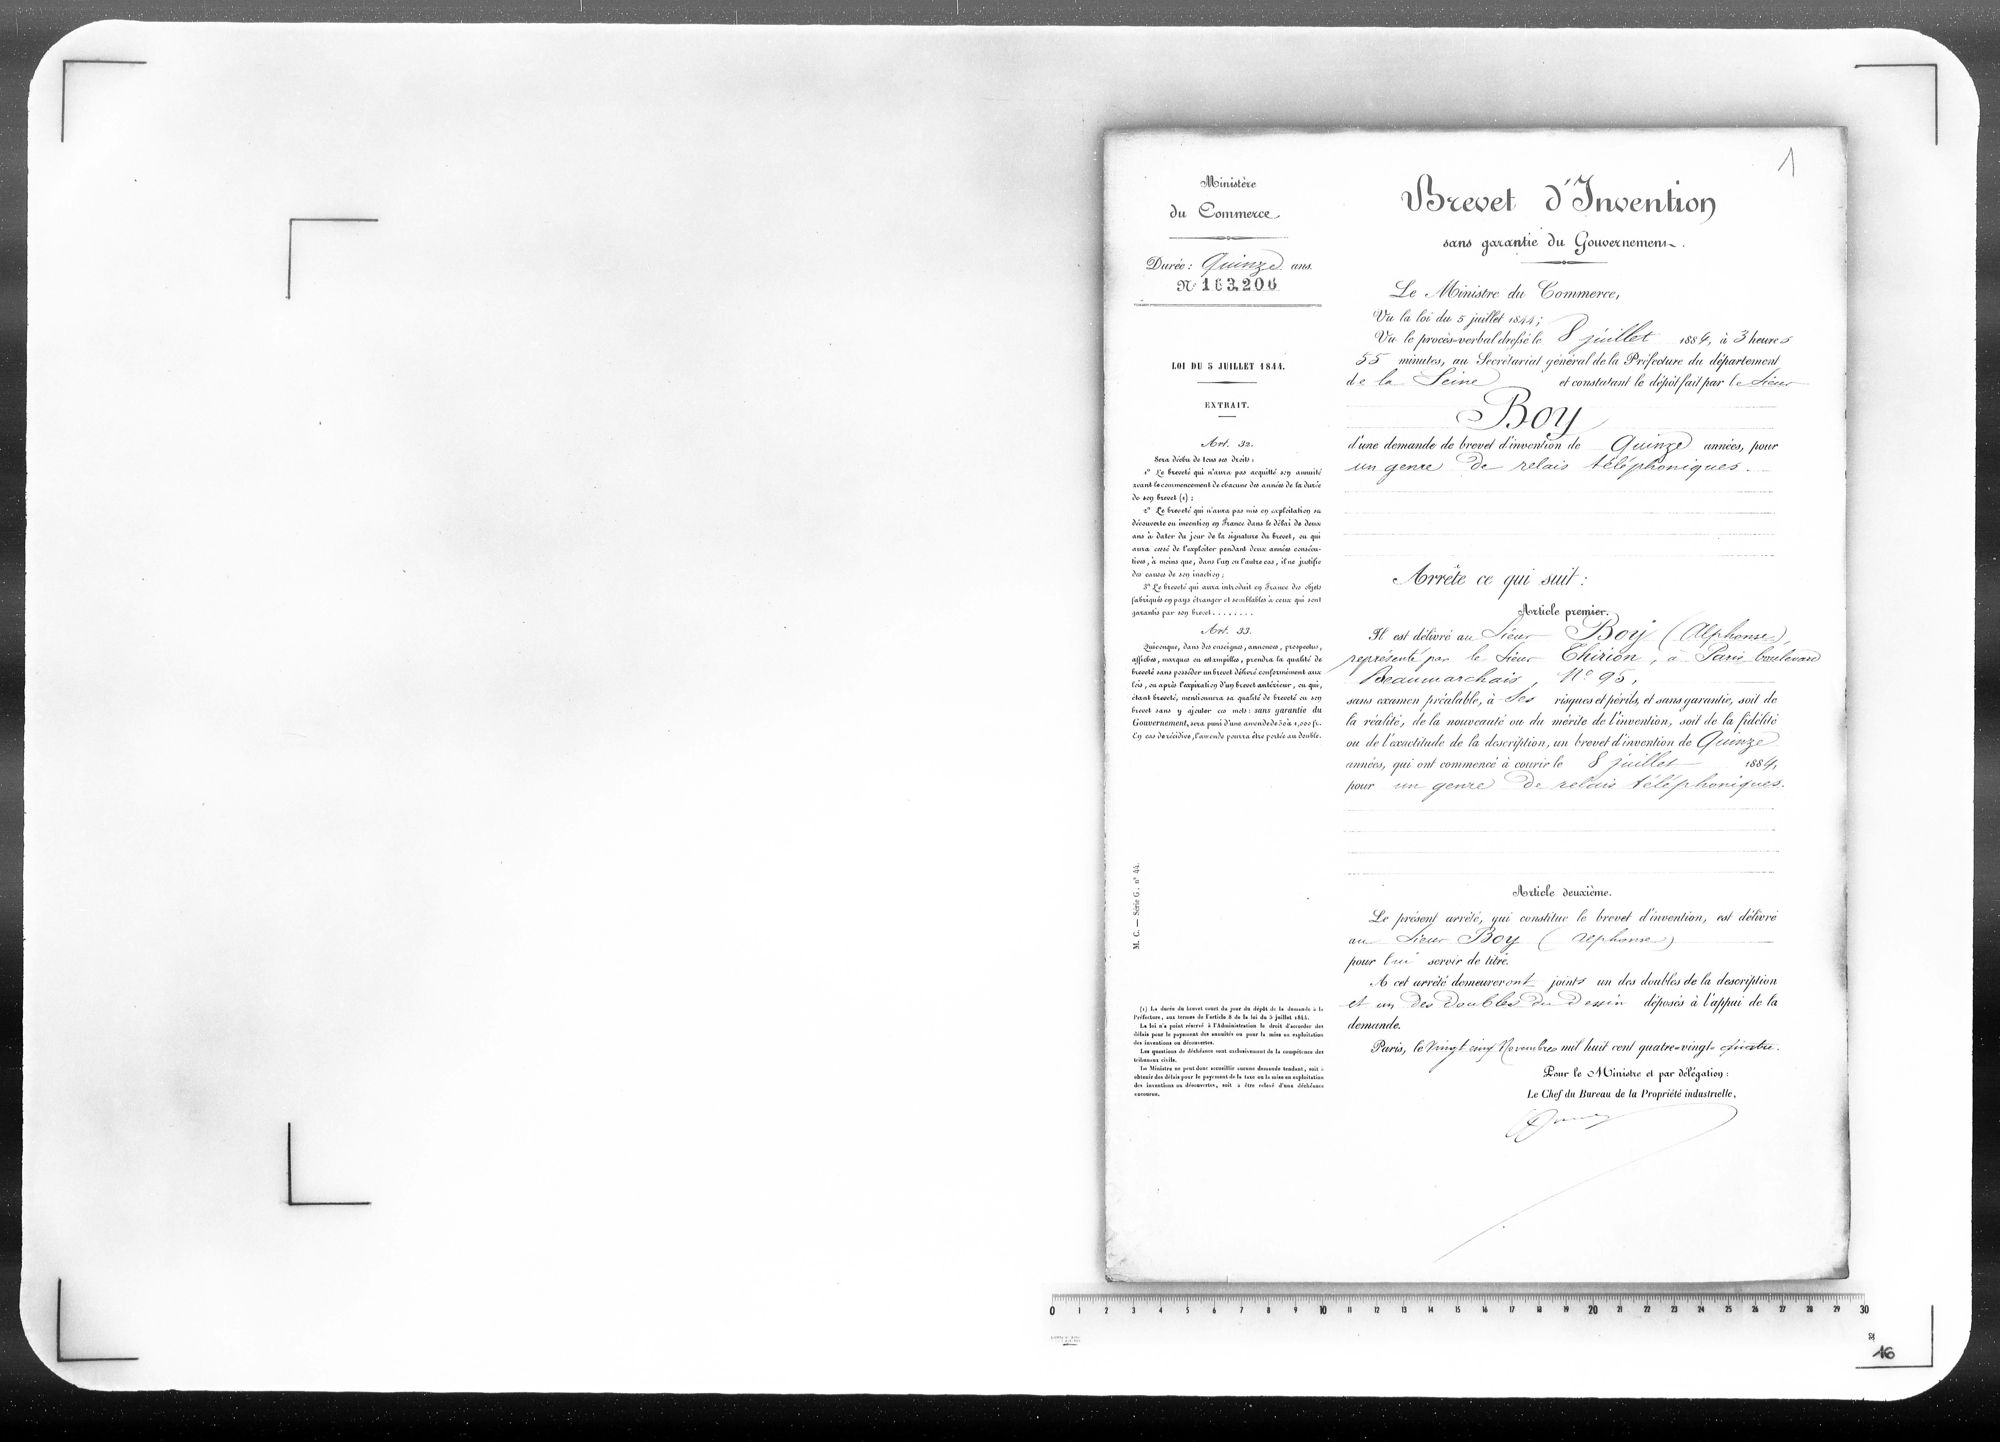 1
Ministère
du Commerce
Durée : Quinze ans.
N° 163,206
LOI DU 5 JUILLET 1844.
EXTRAIT.
Art. 32.
Sera déchu de tous ses droits :
1° Le breveté qui n'aura pas acquitté son annuité
avant le commencement de chacune des années de la durée
de son brevet (1) ;
2° Le breveté qui n'aura pas mis en exploitation sa
découverte ou invention en France dans le délai de deux
ans à dater du jour de la signature du brevet, ou qui
aura cessé de l'exploiter pendant deux années consécu-
tives, à moins que, dans l'un ou l'autre cas, il ne justifie
des causes de son inaction ;
3° Le breveté qui aura introduit en France des objets
fabriqués en pays étranger et semblables à ceux qui sont
garantis par son brevet........
Art. 33.
Quiconque, dans des enseignes, annonces, prospectus,
affiches, marques ou estampilles, prendra la qualité de
breveté sans posséder un brevet délivré conformément aux
lois, ou après l'expiration d'un brevet antérieur, ou qui,
étant breveté, mentionnera sa qualité de breveté ou son
brevet sans y ajouter ces mots : sans garantie du
Gouvernement, sera puni d'une amende de 50 à 1,000 fr.
En cas de récidive, l'amende pourra être portée au double.
M. C. — Série G. n° 44.
(1) La durée du brevet court du jour du dépôt de la demande à la
Préfecture, aux termes de l'article 8 de la loi du 5 juillet 1844.
La loi n'a point réservé à l'Administration le droit d'accorder des
délais pour le payement des annuités ou pour la mise en exploitation
des inventions ou découvertes.
Les questions de déchéance sont exclusivement de la compétence des
tribunaux civils.
Le Ministre ne peut donc accueillir aucune demande tendant, soit à
obtenir des délais pour le payement de la taxe ou la mise en exploitation
des inventions ou découvertes, soit à être relevé d'une déchéance
encourue.
Brevet d'Invention
sans garantie du Gouvernement.
Le Ministre du Commerce,
Vu la loi du 5 juillet 1844 ;
Vu le procès-verbal dressé le 8 juillet 1884, à 3 heures
55 minutes, au Secrétariat général de la Préfecture du département
de la Seine et constatant le dépôt fait par le Sieur
Boy
d'une demande de brevet d'invention de Quinze années, pour
un genre de relais téléphoniques.
Arrête ce qui suit :
Article premier.
Il est délivré au Sieur Boy (Alphonse),
représenté par le Sieur Thirion, à Paris, boulevard
Beaumarchais, N° 95,
sans examen préalable, à ses risques et périls, et sans garantie, soit de
la réalité, de la nouveauté ou du mérite de l'invention, soit de la fidélité
ou de l'exactitude de la description, un brevet d'invention de Quinze
années, qui ont commencé à courir le 8 juillet 1884,
pour un genre de relais téléphoniques.
Article deuxième.
Le présent arrêté, qui constitue le brevet d'invention, est délivré
au Sieur Boy (Alphonse)
pour lui servir de titre.
A cet arrêté demeureront joints un des doubles de la description
et un des doubles du dessin déposés à l'appui de la
demande.
Paris, le Vingt cinq Novembre mil huit cent quatre-vingt-quatre.
Pour le Ministre et par délégation :
Le Chef du Bureau de la Propriété industrielle,
0 1 2 3 4 5 6 7 8 9 10 11 12 13 14 15 16 17 18 19 20 21 22 23 24 25 26 27 28 29 30
16